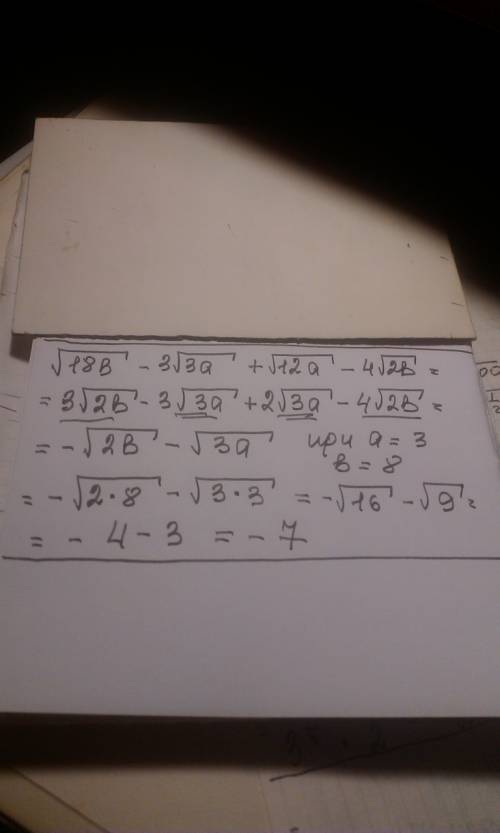 √18в - 3√3a + √12a - 4√2в =
= 3√2в - 3√3a + 2√3a - 4√2в =
= -√2в - √3a при a = 3
в = 8
= -√2·8 - √3·3 = -√16 - √9 =
= - 4 - 3 = - 7